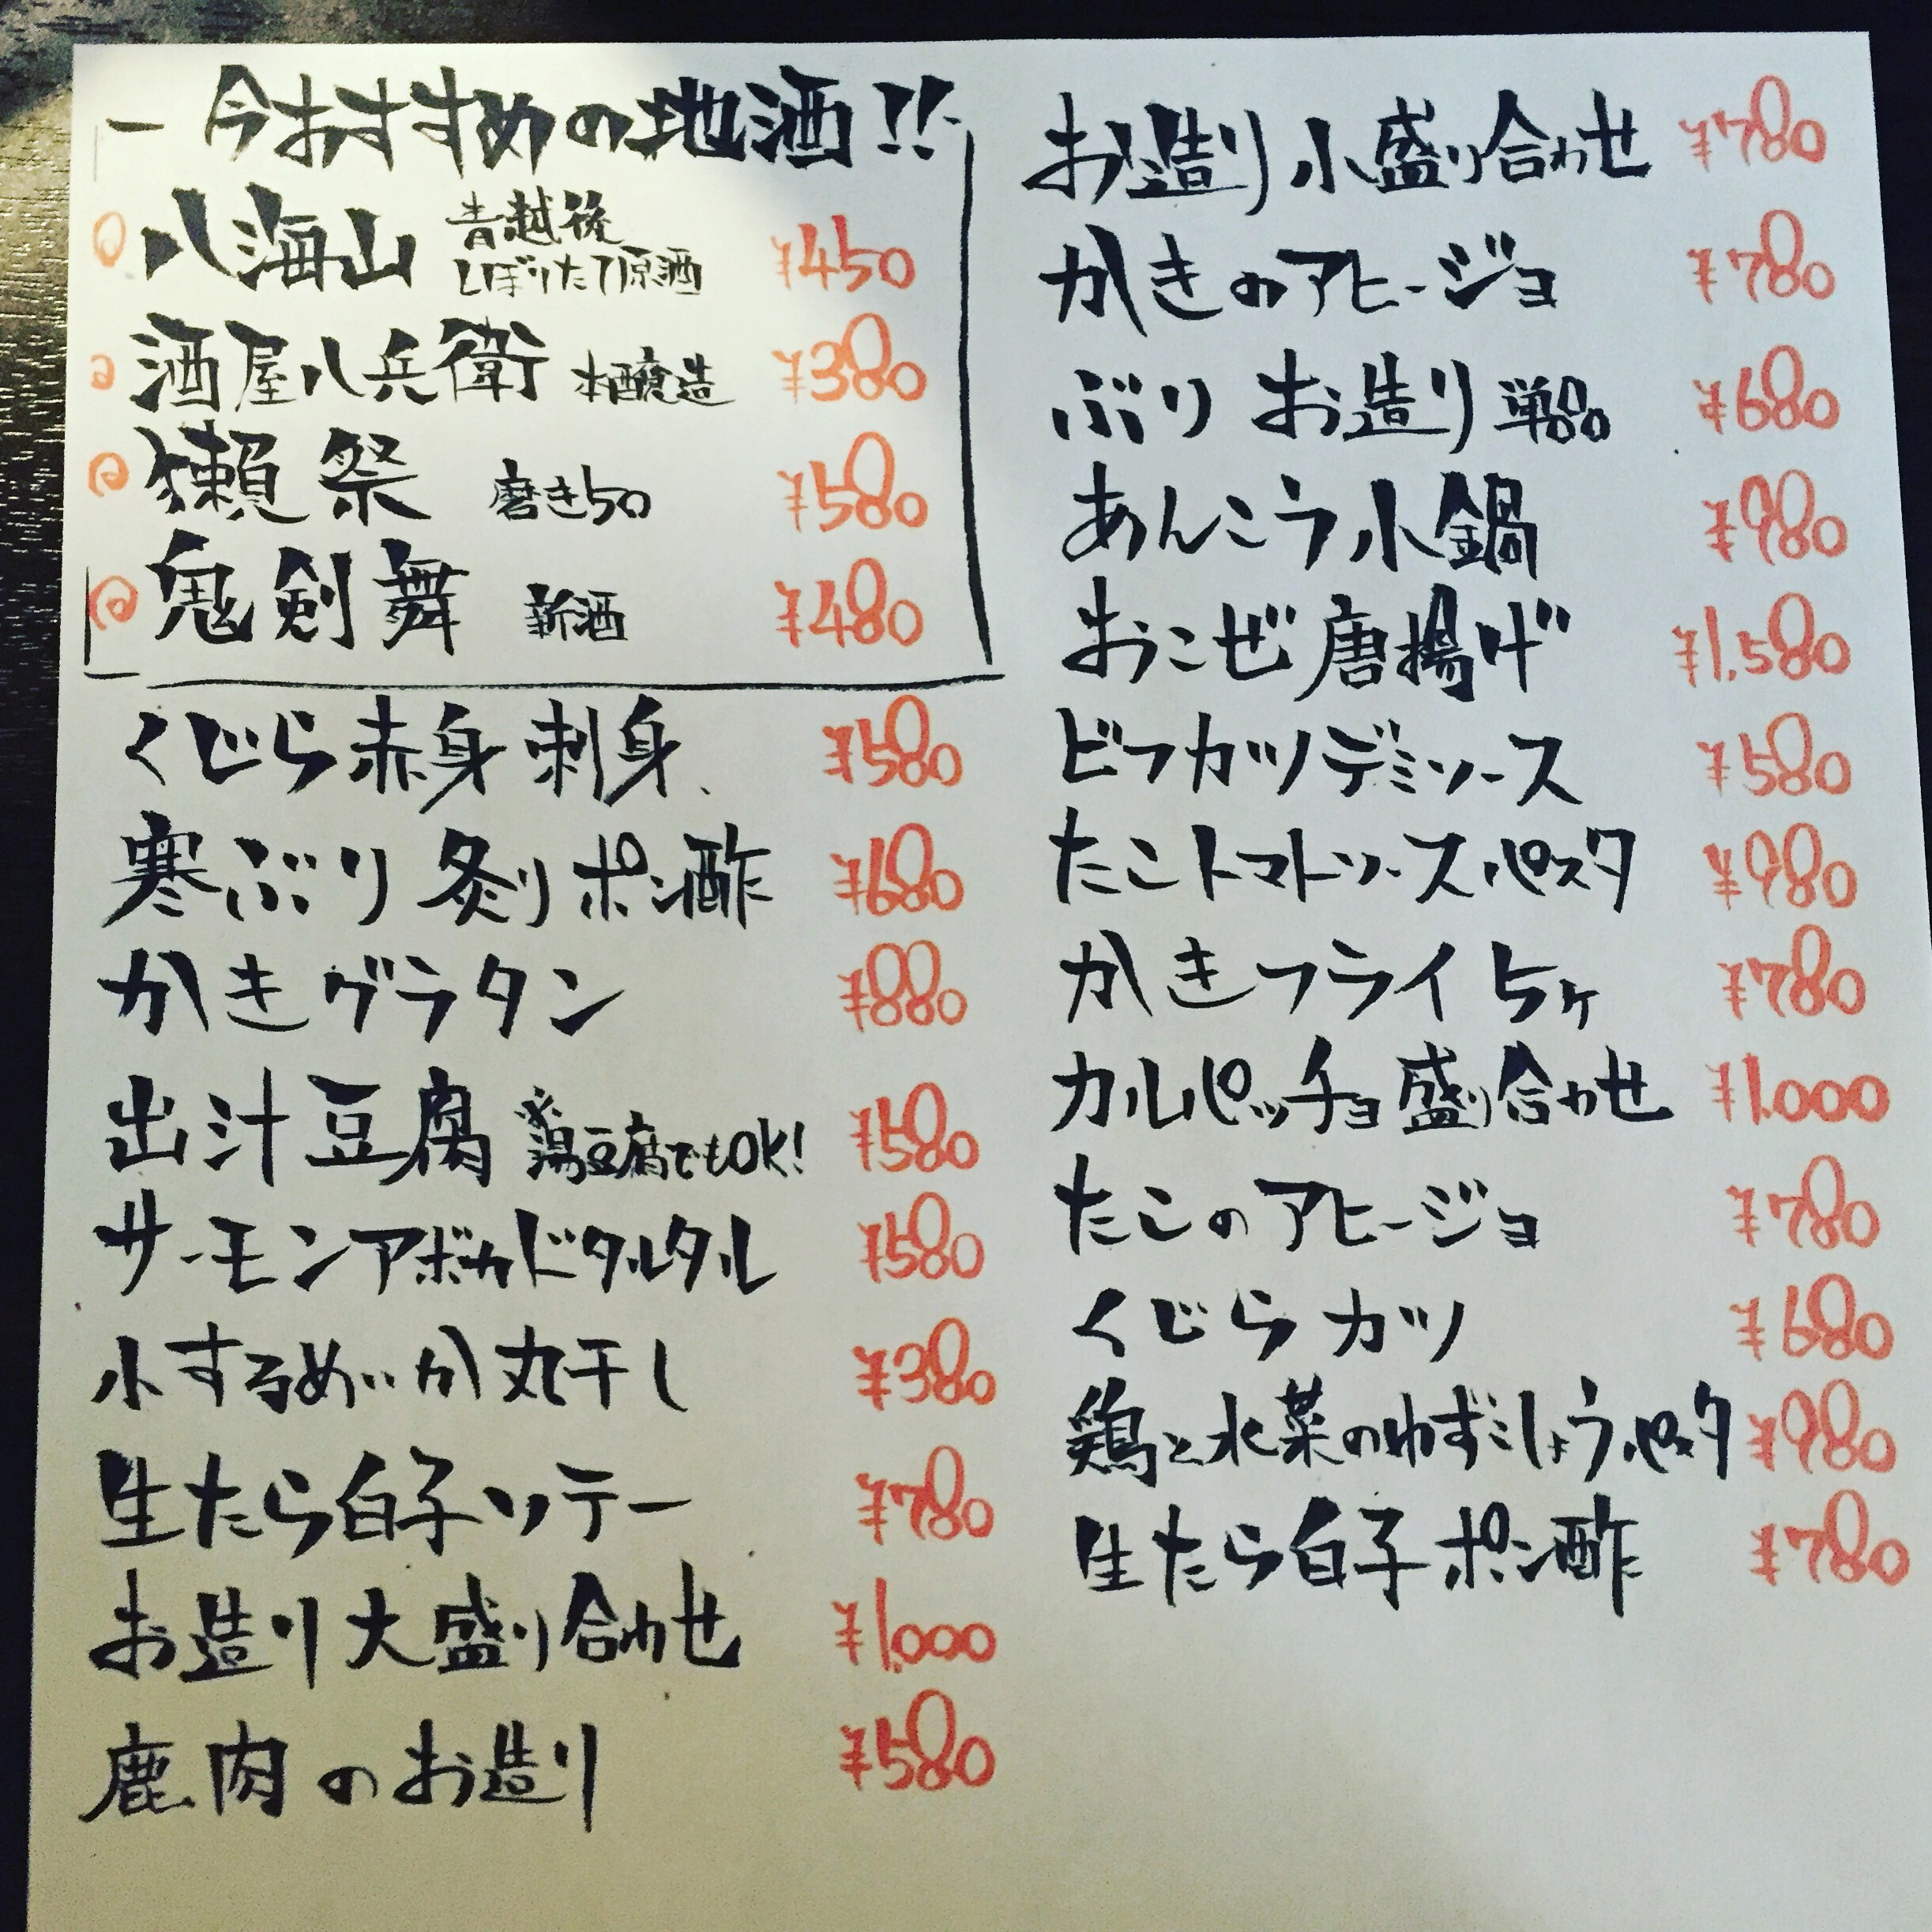 今おすすめの地酒!!
八海山 青越後 しぼりたて原酒 ¥450
酒屋八兵衛 本醸造 ¥380
獺祭 磨き50 ¥580
鬼剣舞 新酒 ¥480
くじら赤身刺身 ¥580
寒ぶり炙りポン酢 ¥680
かきグラタン ¥880
出汁豆腐 ※湯豆腐でもOK! ¥580
サーモンアボカドタルタル ¥580
小するめいか丸干し ¥380
生たら白子ソテー ¥780
お造り大盛り合わせ ¥1.000
鹿肉のお造り ¥580
お造り小盛り合わせ ¥780
かきのアヒージョ ¥780
ぶりお造り単品 ¥680
あんこう小鍋 ¥980
おこぜ唐揚げ ¥1.580
ビフカツデミソース ¥580
たこトマトソースパスタ ¥980
かきフライ5ヶ ¥780
カルパッチョ盛り合わせ ¥1.000
たこのアヒージョ ¥780
くじらカツ ¥680
鶏と水菜のゆずこしょうパスタ ¥980
生たら白子ポン酢 ¥780